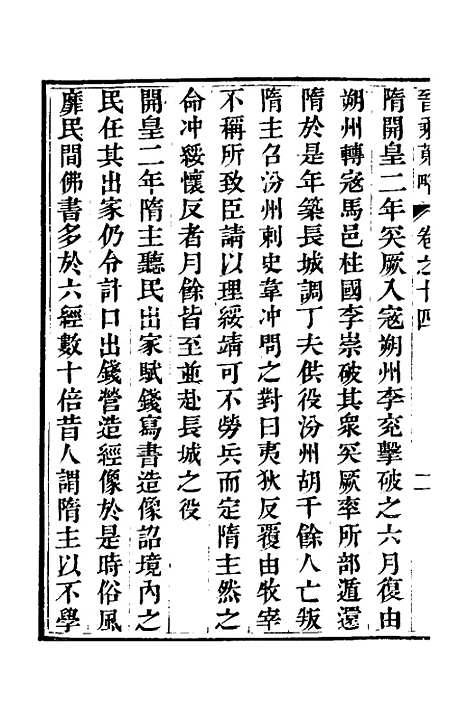 晉乘蒐略 卷之十四 二
隋開皇二年突厥入寇朔州李充擊破之六月復由
朔州轉寇馬邑柱國李崇破其衆突厥率所部遁還
隋於是年築長城調丁夫供役汾州胡千餘人亡叛
隋主召汾州刺史韋冲問之對曰夷狄反覆由牧宰
不稱所致臣請以理綏靖可不勞兵而定隋主然之
命冲綏懷反者月餘皆至並赴長城之役
開皇二年隋主聽民出家賦錢寫書造像詔境內之
民任其出家仍令計口出錢營造經像於是時俗風
靡民間佛書多於六經數十倍昔人謂隋主以不學